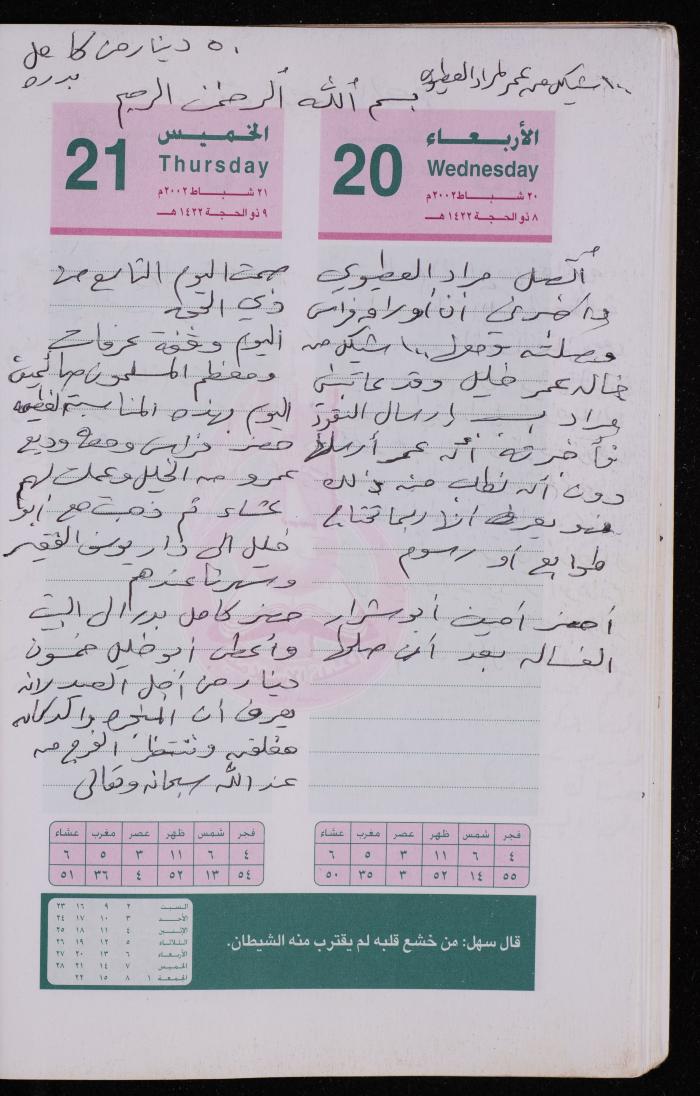 ٥٠ دينار من كامل
بدره
١٠٠ شيكل من عمر لمراد العطيوي
بسم الله الرحمن الرحيم
الأربعاء
Wednesday
20
٢٠ شباط ٢٠٠٢م
٨ ذو الحجة ١٤٢٢هـ
أتصل مراد العطيوي
واخبرني أن أوراق فراس
وصلته وحول ١٠٠ شيكل من
خاله عمر خليل وقد عاتبني
مراد بسبب إرسال النقود
فأخبرته أنه عمر أرسلها
دون أن نطلب منه ذلك
فهو يعرف اننا ربما نحتاج
طوابع أو رسوم
أحضر أمين أبو شرار
الغساله بعد أن صلحها
الخميس
Thursday
21
٢١ شباط ٢٠٠٢م
٩ ذو الحجة ١٤٢٢هـ
صمت اليوم التاسع من
ذي الحجه
اليوم وقفة عرفات
ومعظم المسلمون صائمين
اليوم بهذه المناسبة العظيمه
حضر فراس ومعه وديع
عمرو من الخليل وعملت لهم
عشاء ثم ذهبت مع أبو
خليل الى دار يوسف الفقير
وسهرنا عندهم
حضر كامل بدر الى البيت
وأعطى أبو خليل خمسون
دينار من أجل العيد لانه
يعرف أن المنجره والدكانه
مغلقه وننتظر الفرج من
عند الله سبحانه وتعالى
فجر شمس ظهر عصر مغرب عشاء
٤ ٦ ١١ ٣ ٥ ٦
٥٥ ١٤ ٥٢ ٣ ٣٥ ٥٠
فجر شمس ظهر عصر مغرب عشاء
٤ ٦ ١١ ٣ ٥ ٦
٥٤ ١٣ ٥٢ ٤ ٣٦ ٥١
قال سهل: من خشع قلبه لم يقترب منه الشيطان.
السبت ٢ ٩ ١٦ ٢٣
الأحد ٣ ١٠ ١٧ ٢٤
الإثنين ٤ ١١ ١٨ ٢٥
الثلاثاء ٥ ١٢ ١٩ ٢٦
الأربعاء ٦ ١٣ ٢٠ ٢٧
الخميس ٧ ١٤ ٢١ ٢٨
الجمعة ١ ٨ ١٥ ٢٢